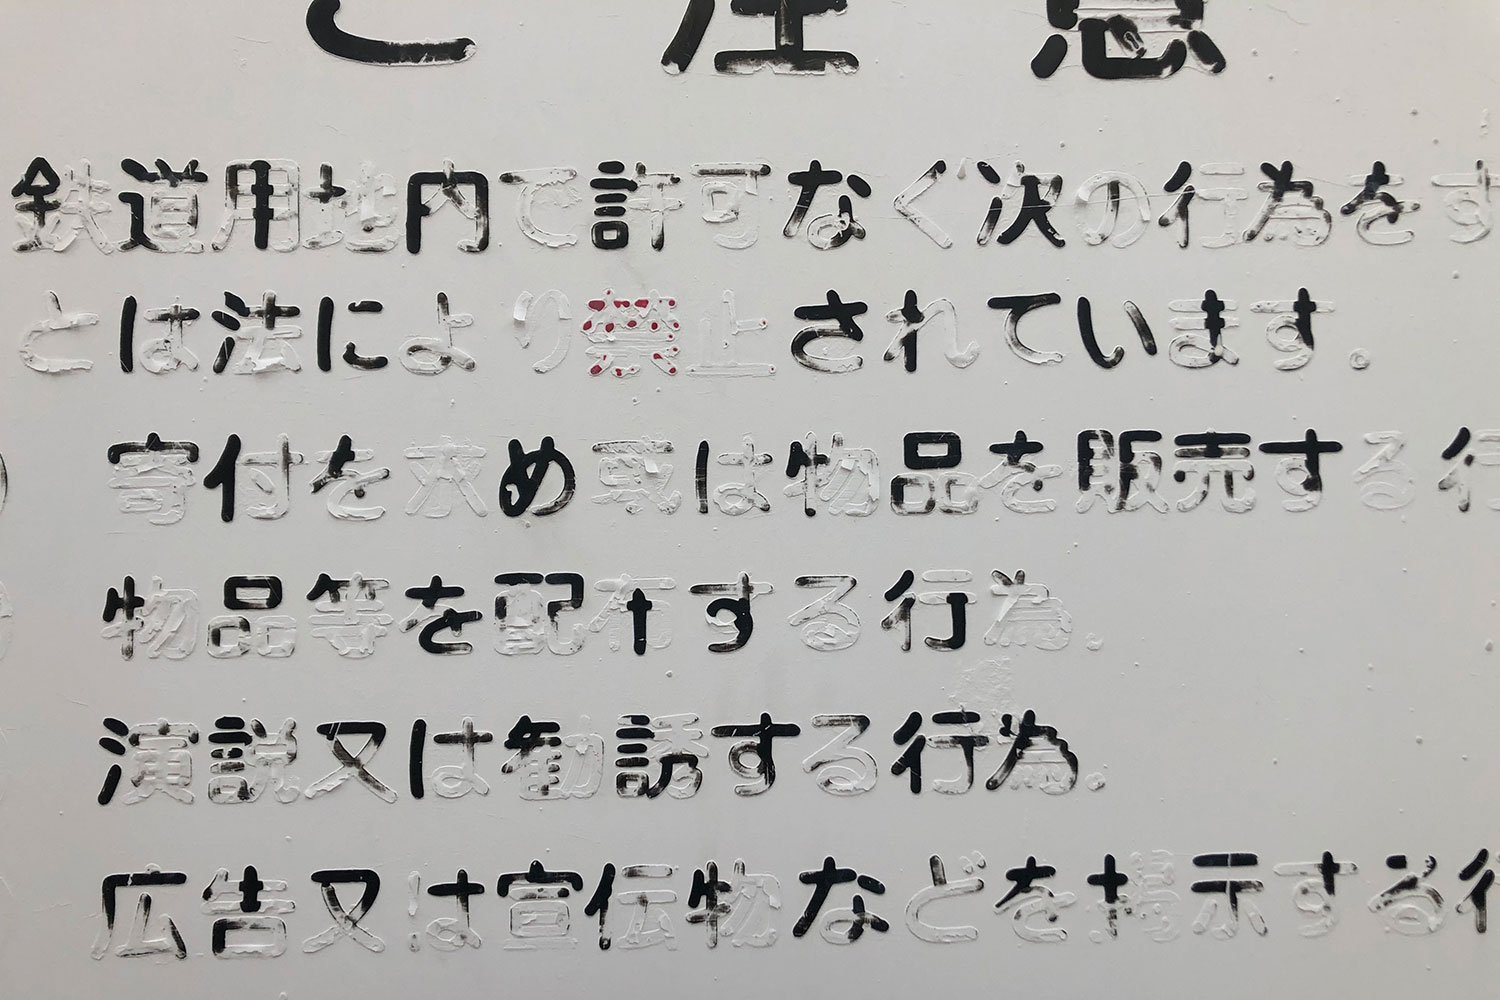 ご注意
鉄道用地内で許可なく次の行為をす
とは法により禁止されています。
寄付を求め或は物品を販売する行
物品等を配布する行為。
演説又は勧誘する行為。
広告又は宣伝物などを掲示する行